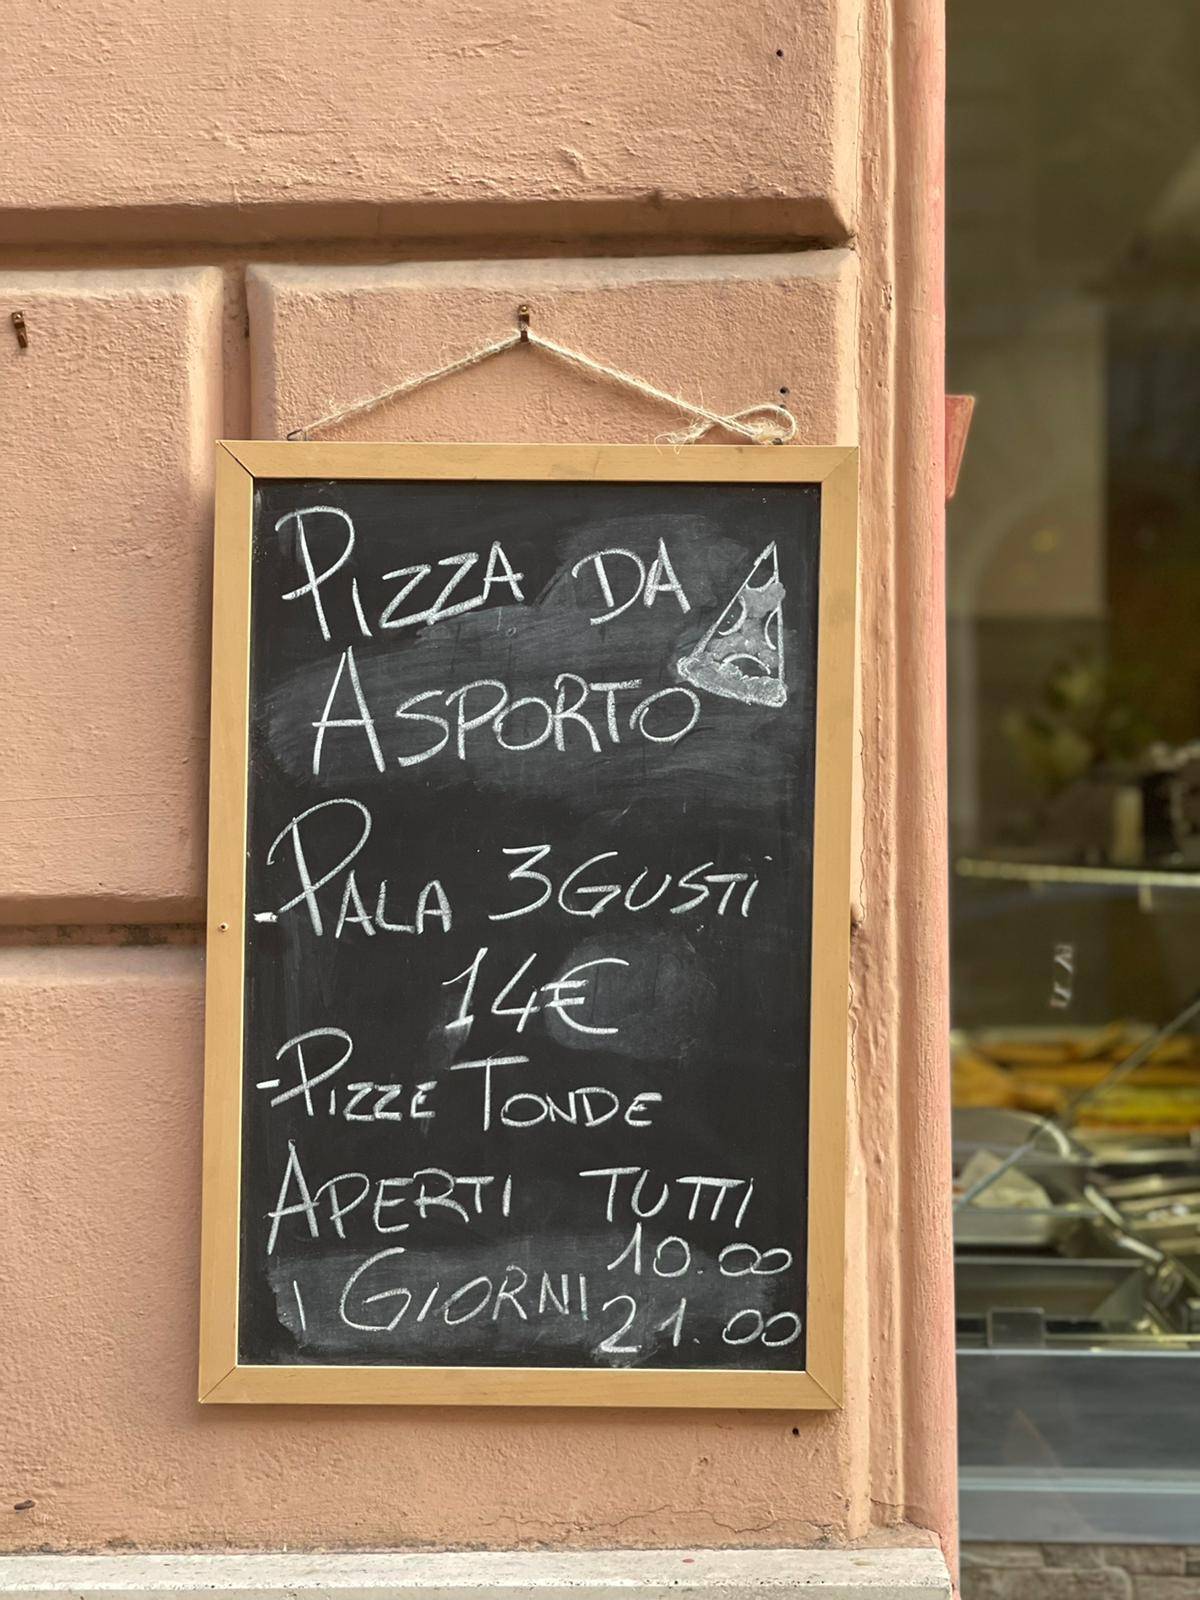 PIZZA DA
ASPORTO
-PALA 3 GUSTI
14€
-PIZZE TONDE
APERTI TUTTI
I GIORNI 10.00
21.00